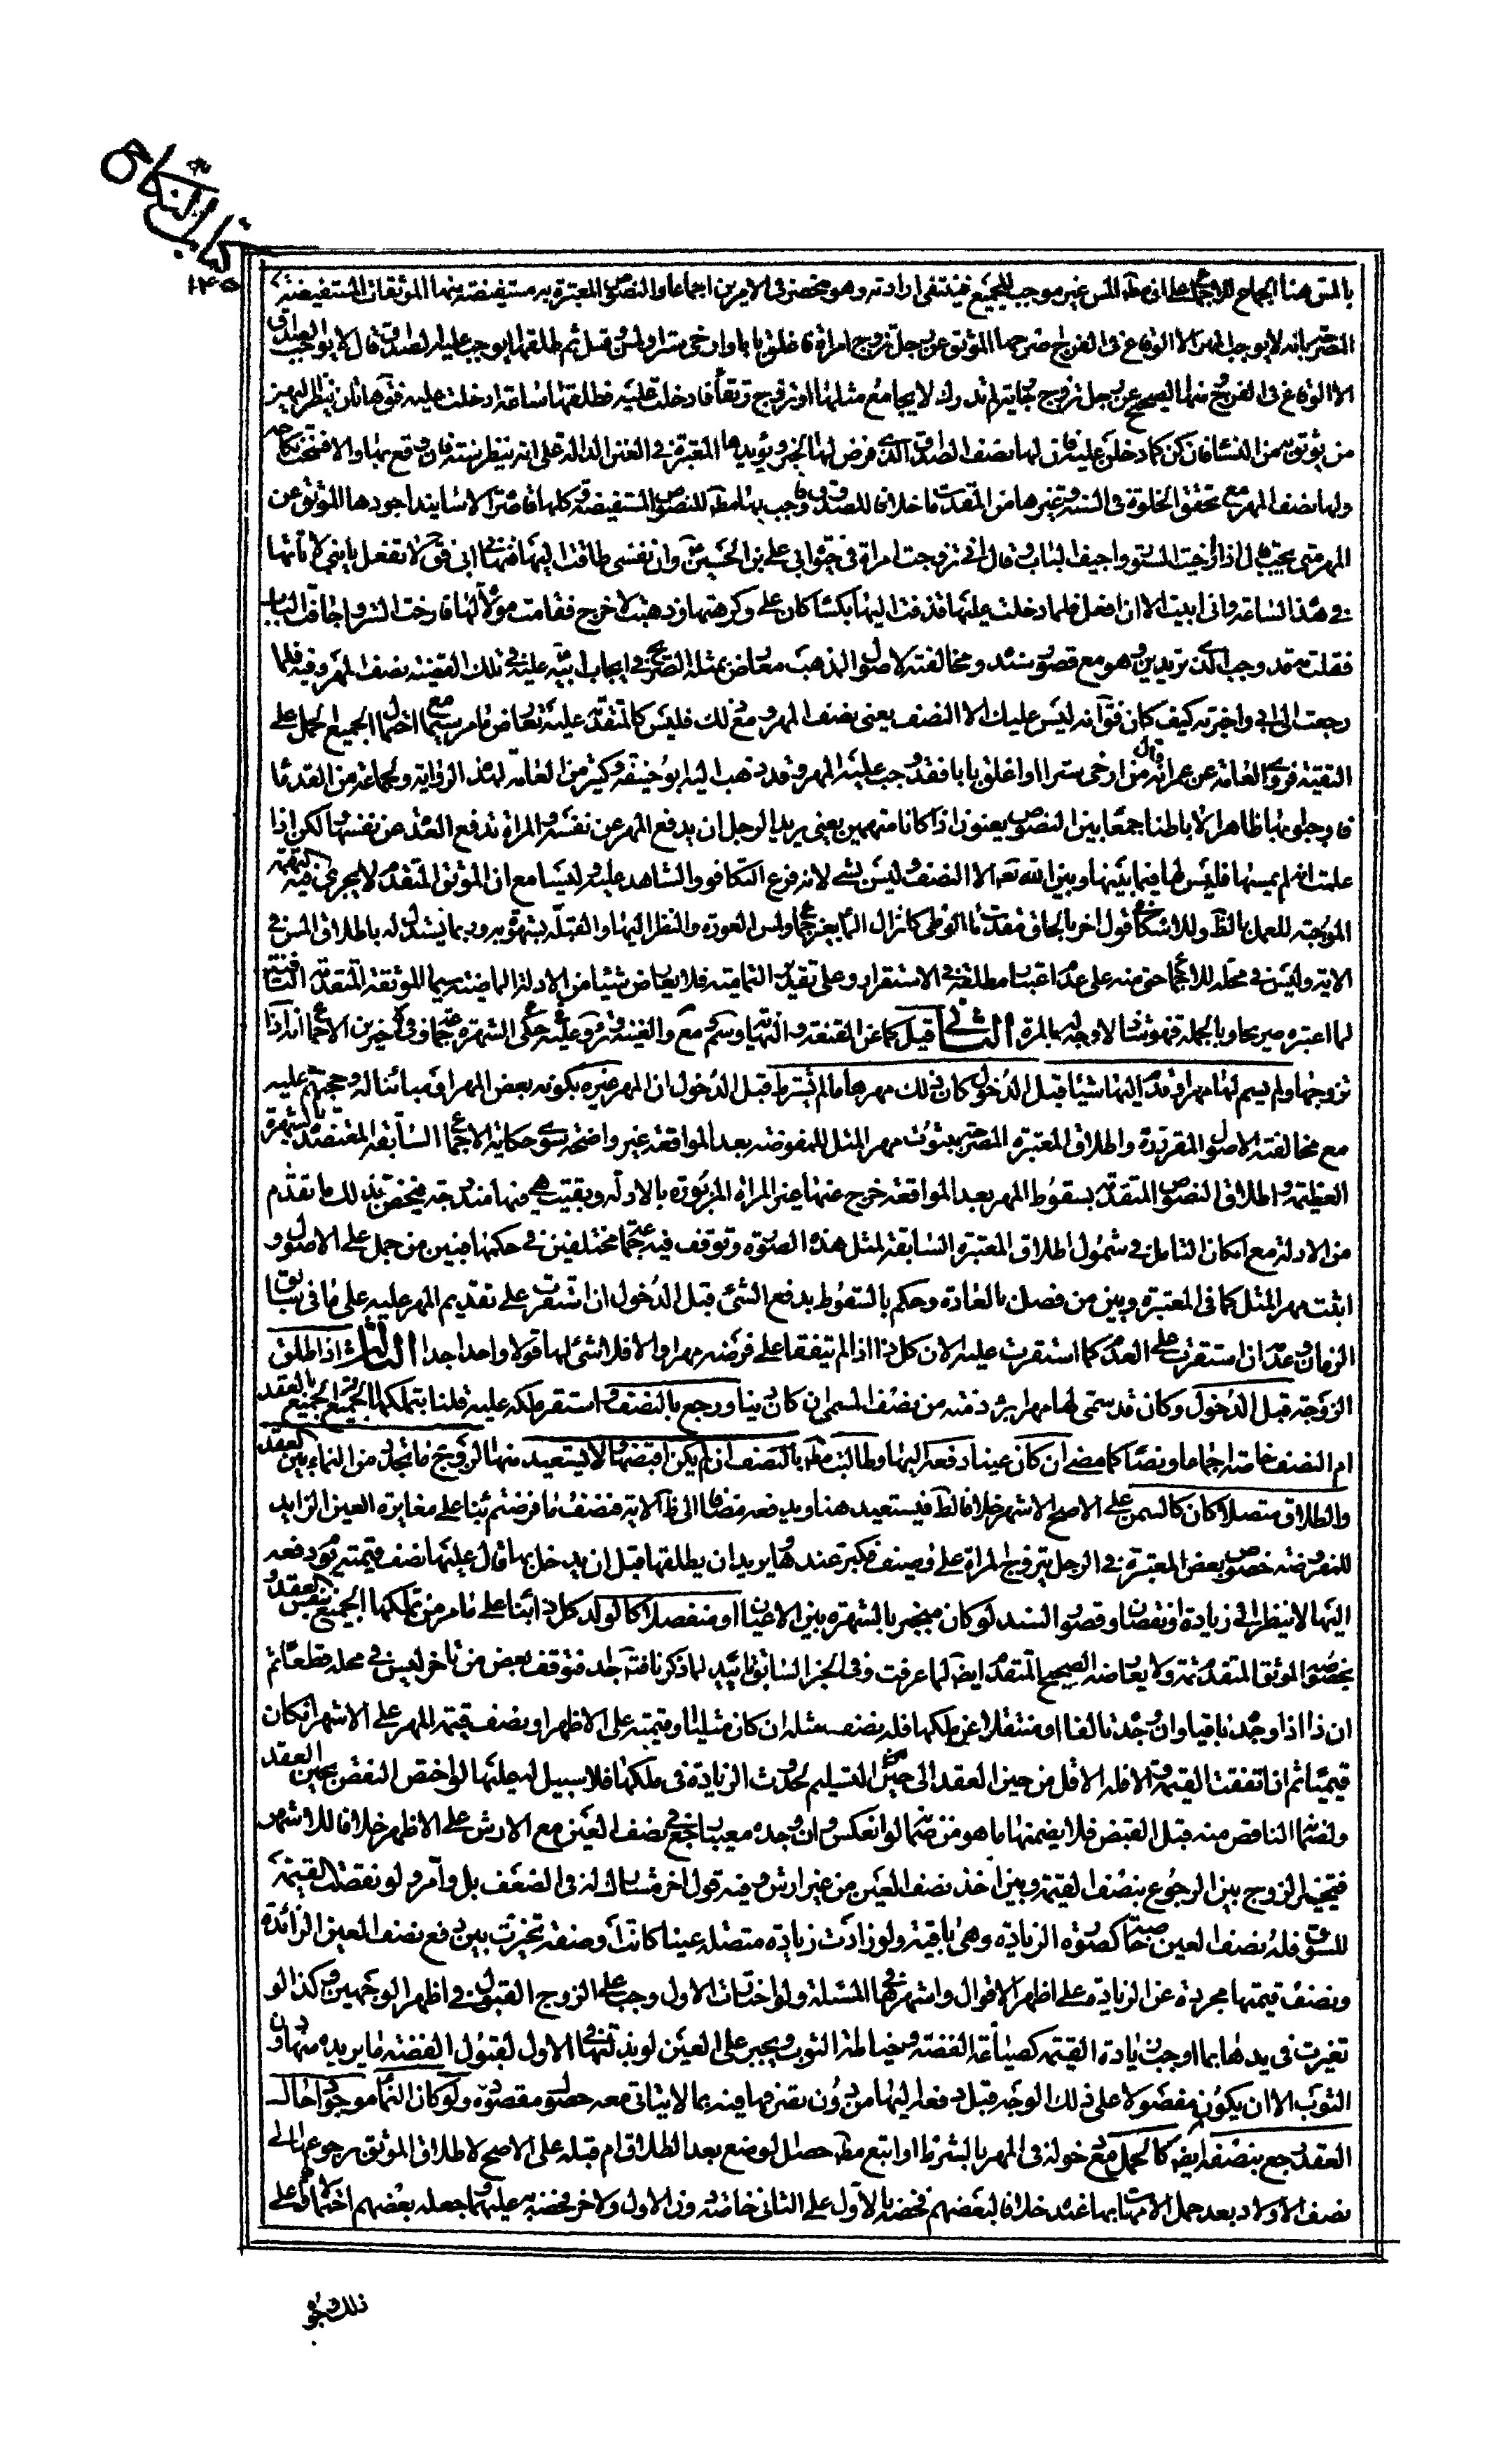 كتاب النكاح
١٤٥
بالمس هنا الجماع للاجماع على ان مطلق المس غير موجب للجميع فينتفى ارادته وهو منحصر فى الامرين اجماعا والنصوص المعتبرة به مستفيضة منها الموثقان المستفيضة
المصرحة بانه لا يوجب المهر الا الوقاع فى الفرج الموثق عن رجل تزوج امراة فاغلق بابا وارخى سترا ولمس وقبل ثم طلقها ايوجب عليه الصداق قال لا يوجب الصداق
الا الوقاع فى الفرج منها الصحيح عن رجل تزوج جارية لم تدرك لا يجامع مثلها او تزوج رتقاء فادخلت عليه فطلقها ساعة ادخلت عليه فقال هاتان ينظر اليهن
من يوثق به من النساء فان كن كما دخلن عليه فان لها نصف الصداق الذى فرض لها الخبر ويؤيدها المعتبرة فى العنن الدالة على انه ينتظر سنة فان وقع بها والا فسخت نكاحه
ولها نصف المهر مع تحقق الخلوة فى السنة وغيرها من المقدمات خلافا للصدوق فاوجب بها مطلقا للنصوص المستفيضة وكلها قاصرة الاسانيد اجودها الموثق عن
المهر متى يجب قال اذا ارخيت الستور واجيف الباب وقال انى تزوجت امراة فى حيوة ابى على بن الحسين وان نفسى تاقت اليها فنهانى ابى فقال لا تفعل يا بنى لا تاتها
فى هذه الساعة وانى ابيت الا ان افعل فلما دخلت عليها قذفت اليها بكساء كان على وكرهتها وذهبت لاخرج فقامت مولاة لها فارخت الستر واجافت الباب
فقلت مه قد وجب الذى تريدين وهو مع قصور سنده ومخالفته لاصول المذهب معارض بمثله الصريح فى ايجاب ابيه عليه فى تلك القضية نصف المهر وفيه فلما
رجعت الى ابى واخبرته كيف كان فقال انه ليس عليك الا النصف يعنى نصف المهر ومع ذلك فليس كالمتقدمة عليه تعارض ما مر سيما مع احتمال الجميع الحمل على
التقية فروى العامة عن عمر انه قال من ارخى سترا او اغلق بابا فقد وجب عليه المهر وقد ذهب اليه ابو حنيفة وكثير من العامة لهذه الرواية ولجماعة من القدماء
فاوجبوه بها ظاهرا لا باطنا جمعا بين النصوص يعنون اذا كانا متهمين يعنى يريد الرجل ان يدفع المهر عن نفسه والمراة تدفع العدة عن نفسها لكن اذا
علمت انه لم يمسها فليس لها فيما بينها وبين الله تعالى الا النصف وليس بشئ لانه فرع التكافؤ والشاهد عليه وليسا مع ان الموثق المتقدم لا يجرى فيه التقية
الموجبة للعمل بالظاهر وللاسكافى قول اخر بالحاق مقدمات الوطى كانزال الماء بغير جماع ولمس العورة والنظر اليها والقبلة بشهوة به وربما يستدل له باطلاق المس فى
الاية وليس فى محله للاجماع حتى منه على عدم اعتبار مطلقه فى الاستقرار وعلى تقدير التمامية فلا يعارض شيئا من الادلة الماضية سيما الموثقة المتقدمة النافية
لما اعتبره صريحا وبالجملة فهو شاذ لا وجه له بالمرة الثانى قيل كما عن المقنعة والنهاية وسلار ومع والغنية وئر وعليه حكى الشهرة جماعة وفى الاخيرين الاجماع انه اذا
تزوجها ولم يسم لها مهرا وقدم اليها شيئا قبل الدخول كان ذلك مهرها ما لم يشترط قبل الدخول ان المهر غيره بكونه بعض المهر او مباينا له وحجتهم عليه
مع مخالفته الاصول المقررة واطلاق المعتبرة المصرحة بثبوت مهر المثل للمفوضة بعد المواقعة غير واضحة سوى حكاية الاجماع السابقة المعتضدة بالشهرة
العظيمة واطلاق النصوص المتقدمة بسقوط المهر بعد المواقعة خرج عنها غير المراة المزبورة بالادلة وبقيت هى فيها مندرجة فيخص بذلك ما تقدم
من الادلة مع امكان التامل فى شمول اطلاق المعتبرة السابقة لمثل هذه الصورة وتوقف فيه جماعة مختلفين فى حكمها فبين من حمل على الاصول و
اثبت مهر المثل كما فى المعتبرة وبين من فصل بالعادة وحكم بالسقوط بدفع الشئ قبل الدخول ان استقرت على تقديم المهر عليه على ما فى سابق
الزمان وعدمه ان استقرت على العدم كما استقرت عليه الان كل ذا اذا لم يتفقا على فرضه مهرا والا فلا شئ لها قولا واحدا جدا الثالث اذا طلق
الزوجة قبل الدخول وكان قد سمى لها مهرا برئ ذمته من نصف المسمى ان كان دينا ورجع بالنصف واستقر ملكه عليه قلنا بتملكها الجميع بالعقد
ام النصف خاصة اجماعا ونصا كما مضى ان كان عينا دفعه اليها وطالبت منه بالنصف ان لم يكن اقبضها ولا يستعيد منها الزوج ما تجدد من النماء بين العقد
والطلاق متصلا كان كالسمن على الاصح الاشهر خلافا لظ فيستعيد هنا ويدفعه مضافا الى ظاهر الاية فنصف ما فرضتم بناء على مغايرة العين الزايد
للمفروضة خصوص بعض المعتبرة فى الرجل يتزوج المراة على وصيف فيكبر عندها ويريد ان يطلقها قبل ان يدخل بها قال عليها نصف قيمته يوم دفعه
اليها لا ينظر الى زيادة او نقصان وقصور السند لو كان منجبر بالشهرة بين الاعيان او منفصلا كالولد كل ذا بناء على ما مر من تملكها الجميع بنفس العقد و
بخصوصه الموثق المتقدم ثمة ولا يعارضه الصحيح المتقدم ايضا لما عرفت وفى الخبر السابق تاييد لما ذكرنا فتوقف بعض من تاخر ليس فى محله قطعا ثم
ان ذا اذا وجده باقيا وان وجده تالفا او منتقلا عن ملكها فله نصف مثله ان كان مثليا وقيمته على الاظهر او نصف قيمة المهر على الاشهر ان كان
قيميا ثم ان اتفقت القيمة والا فله الاقل من حين العقد الى حين التسليم لحدوث الزيادة فى ملكها فلا سبيل له عليها لو اختص النقص بحين العقد
ولضمان الناقص منه قبل القبض فلا يضمنها ما هو من ضمانه لو انعكس وان وجده معيبا رجع فى نصف العين مع الارش على الاظهر خلافا للاشهر
فتخير الزوج بين الرجوع بنصف القيمة وبين اخذ نصف العين من غير ارش وفيه قول اخر مشارك له فى الضعف بل وامر ولو نقصت القيمة
للسوق فله نصف العين خاصة كصورة الزيادة وهى باقية ولو زادت زيادة متصلة عينا كانت او صفة تخيرت بين دفع نصف العين الزائدة
ونصف قيمتها مجردة عن الزيادة على اظهر الاقوال واشهرها فى المسئلة ولو اختارت الاول وجب على الزوج القبول فى اظهر الوجهين وكذا لو
تغيرت فى يدها بما اوجب زيادة القيمة كصياغة الفضة وخياطة الثوب ويجبر على العين لو بذلتها فى الاول لقبول الفضة ما يريده منها دون
الثوب الا ان يكون مفصولا على ذلك الوجه قبل دفعه اليها من دون تصرفها فيه بما لا ينافى معه حصول مقصوده ولو كان النماء موجودا حال
العقد رجع بنصفه ايضا كالحمل مع دخوله فى المهر بالشرط او اتبع مطلقا حصل الوضع بعد الطلاق ام قبله على الاصح لاطلاق الموثق برجوعه الى
نصف الاولاد بعد حمل الامهات بها عنده خلافا لبعضهم فخصه بالاول على الثانى خاصة دون الاول ولاخر فخصه به عليهما وجعله بعضهم احتمالا على
ذلك وهو